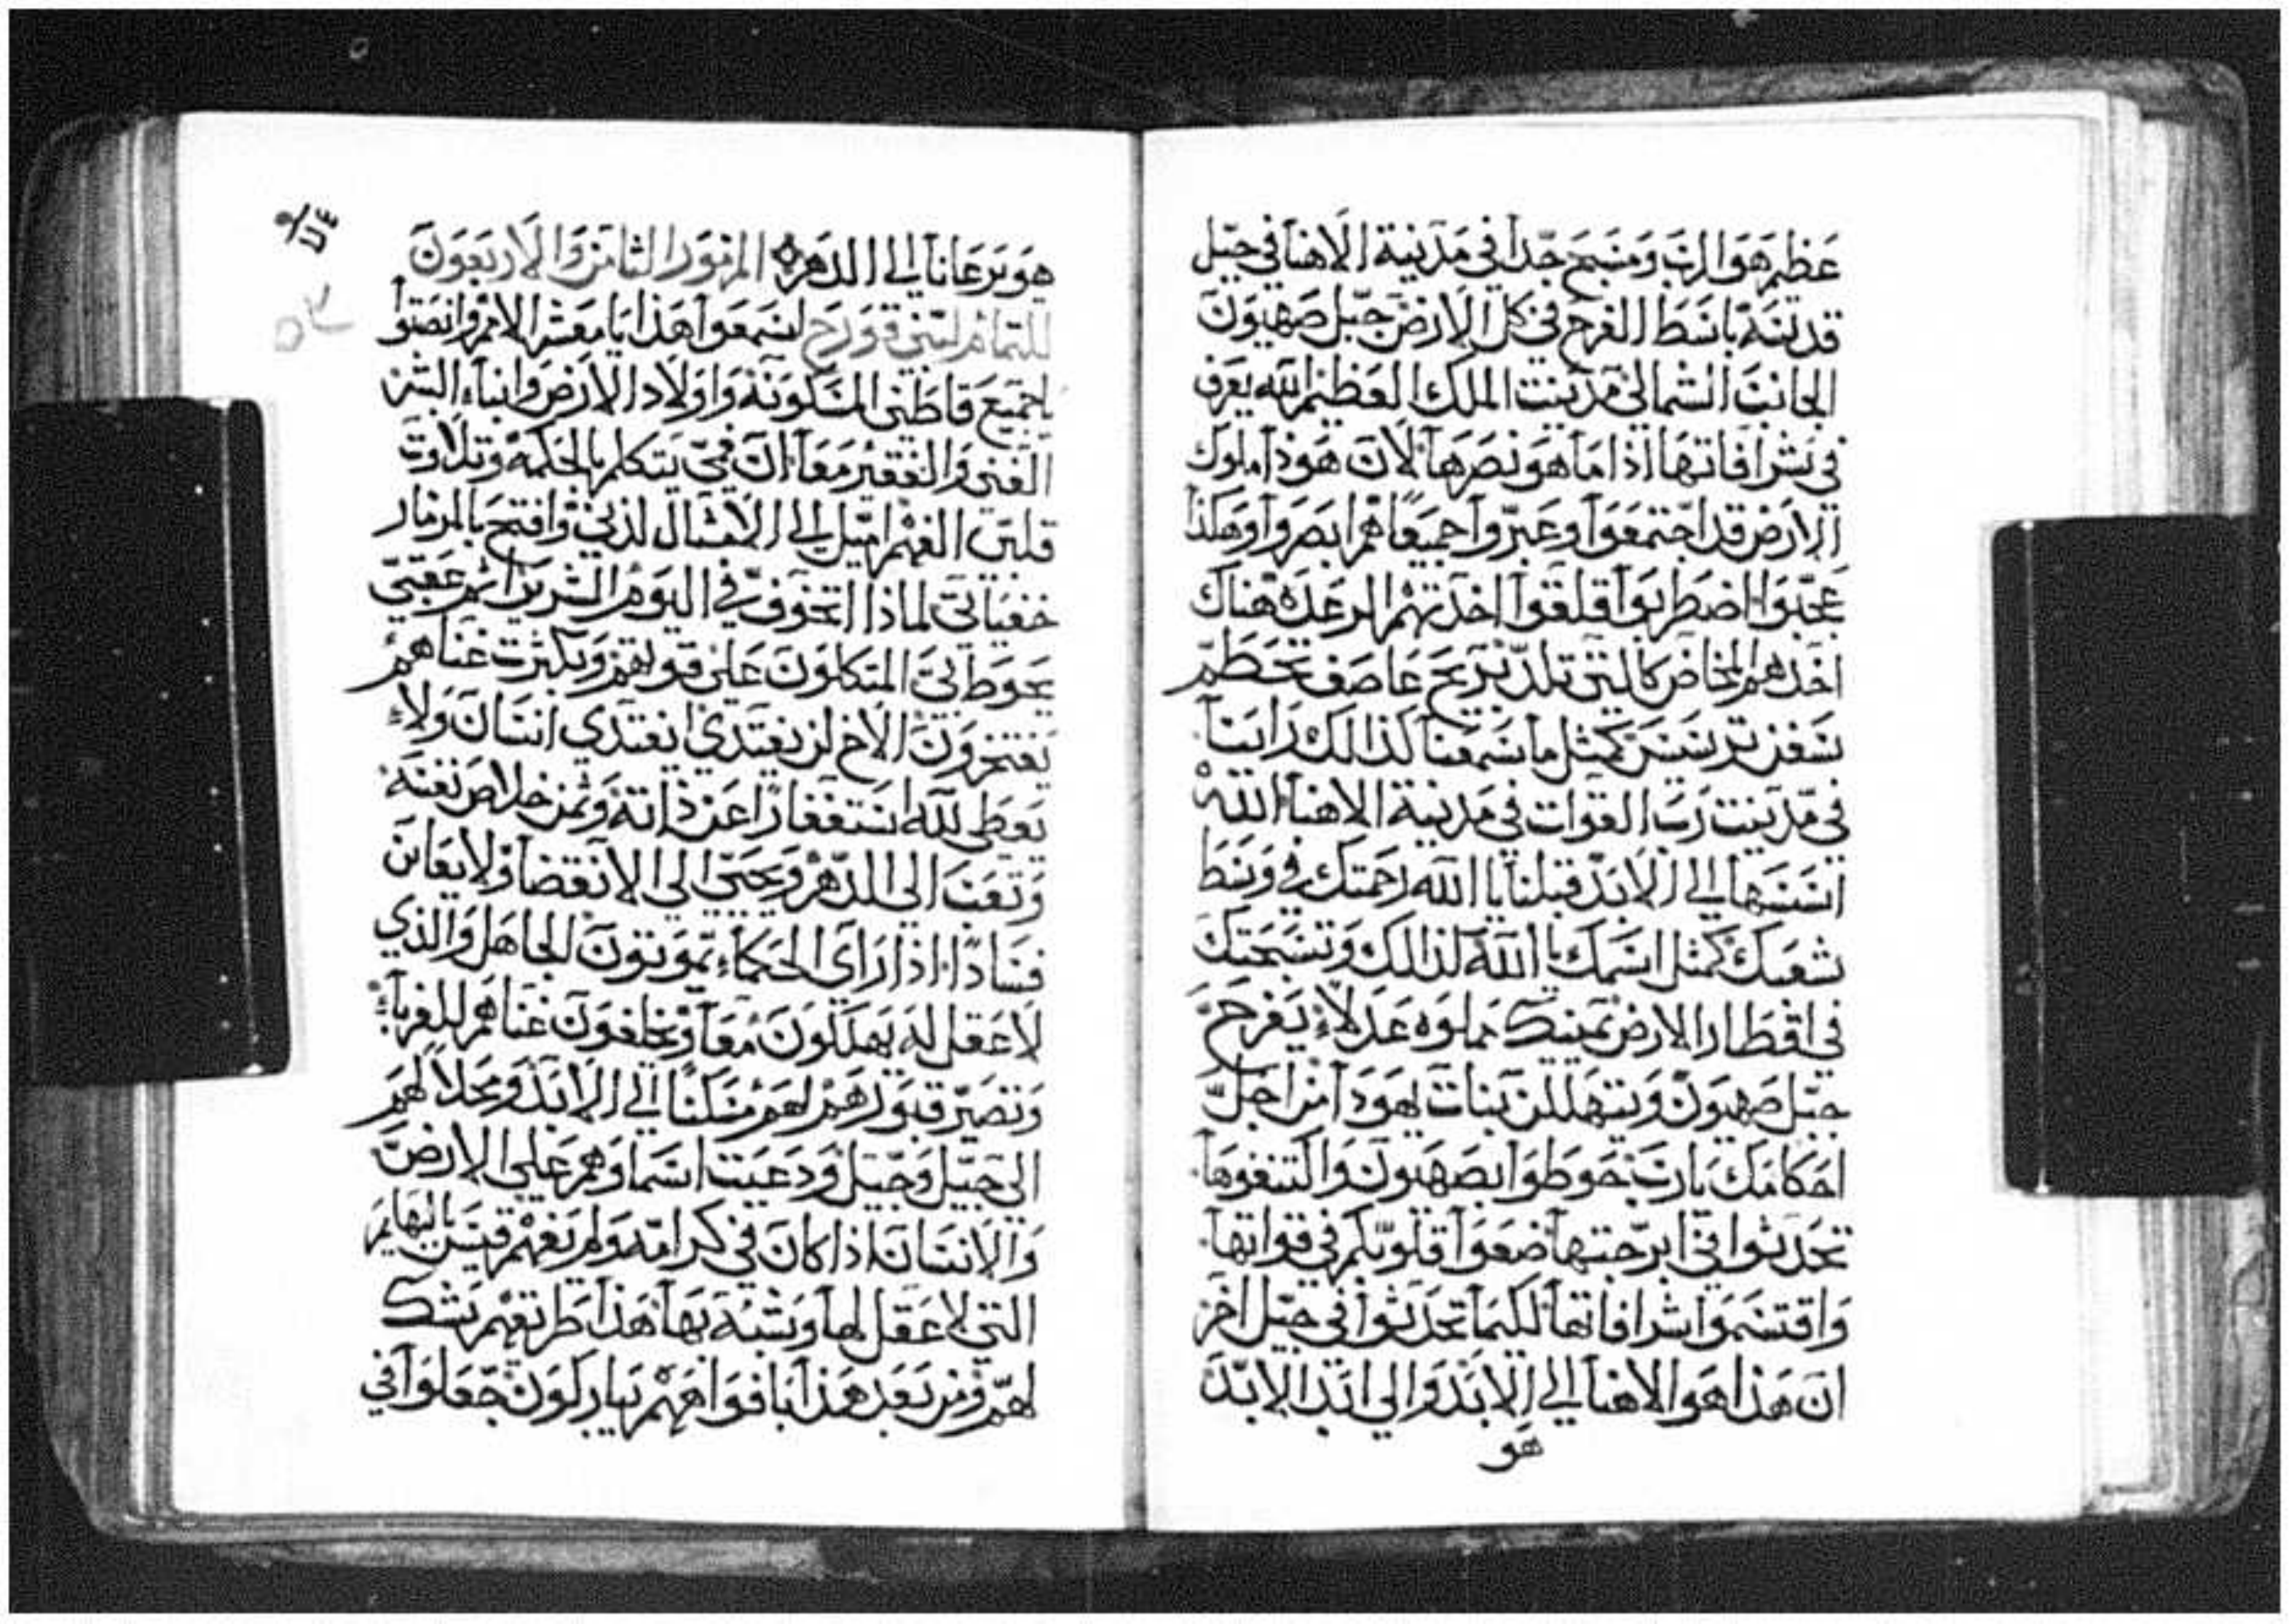 عظيم هو الرب ومسبح جداً في مدينة الاهنا في جبل
قدسه باسط الفرح في كل الارض جبل صهيون
الجانب الشمالي مدينت الملك العظيم الله يعرف
في شرافاتها اذا ما هو نصرها لان هوذا ملوك
الارض قد اجتمعوا وعبروا جميعاً هم ابصروا وهكذا
عجبوا اضطربوا قلقوا اخذتهم الرعدة هناك
اخذهم المخاض كالتي تلد بريح عاصف تحطم
سفن ترسيس كمثل ما سمعنا كذالك راينا
في مدينت رب القوات في مدينة الاهنا الله
اسسها الي الابد قبلنا يا الله رحمتك في وسط
شعبك كمثل اسمك يا الله لذالك وتسبحتك
في اقطار الارض يمينك مملوه عدلاً يفرح
جبل صهيون وتتهللن بنات يهوذا من اجل
احكامك يارب حوطوا بصهيون واكتنفوها
تحدثوا في ابرجتها ضعوا قلوبكم في قواتها
واقتسموا شرافاتها لكيما تحدثوا في جيل اخر
ان هذا هو الاهنا الي الابد والي ابد الابد
هو
هو يرعانا الي الدهر المزمور الثامن والاربعون
للتمام لبني قورح اسمعوا هذا يا معشر الامم وانصتوا
يا جميع قاطني المسكونة واولاد الارض وابناء البشر
الغني والفقير معاً ان فمي يتكلم بالحكمة وتلاوت
قلبي الفهم اميل الي الامثال اذني وافتح بالمزمار
خفياتي لماذا اتخوف في اليوم الشرير اثم عقبي
يحوط بي المتكلون علي قوتهم وبكثرت غناهم
يفتخرون الاخ لن يفتدي ايفتدي انسان ولا
يعطي لله استغفاراً عن ذاته وثمن خلاص نفسه
وتعب الي الدهر ويحيي الي الانقضا ولا يعاين
فساداً اذا راي الحكماء يموتون الجاهل والذي
لا عقل له يهلكون معاً ويخلفون غناهم للغرباء
وتصير قبورهم لهم مسكناً الي الابد ومحلا لهم
الي جيل وجيل ودعيت اسماوهم علي الارض
والانسان اذا كان في كرامه ولم يفهم قيس بالبهايم
التي لا عقل لها وشبه بها هذا طريقهم شك
لهم ومن بعد هذا بافواههم يباركون جعلوا في